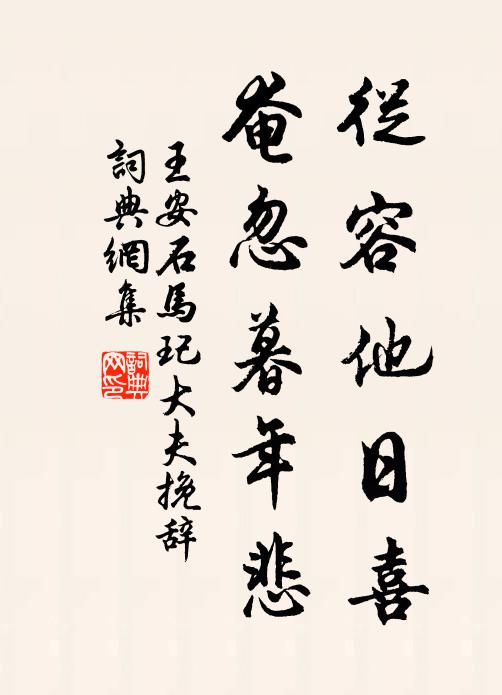 從容他日喜
奄忽暮年悲
王安石馬玘大夫挽辞
詞典網集
詞典网印